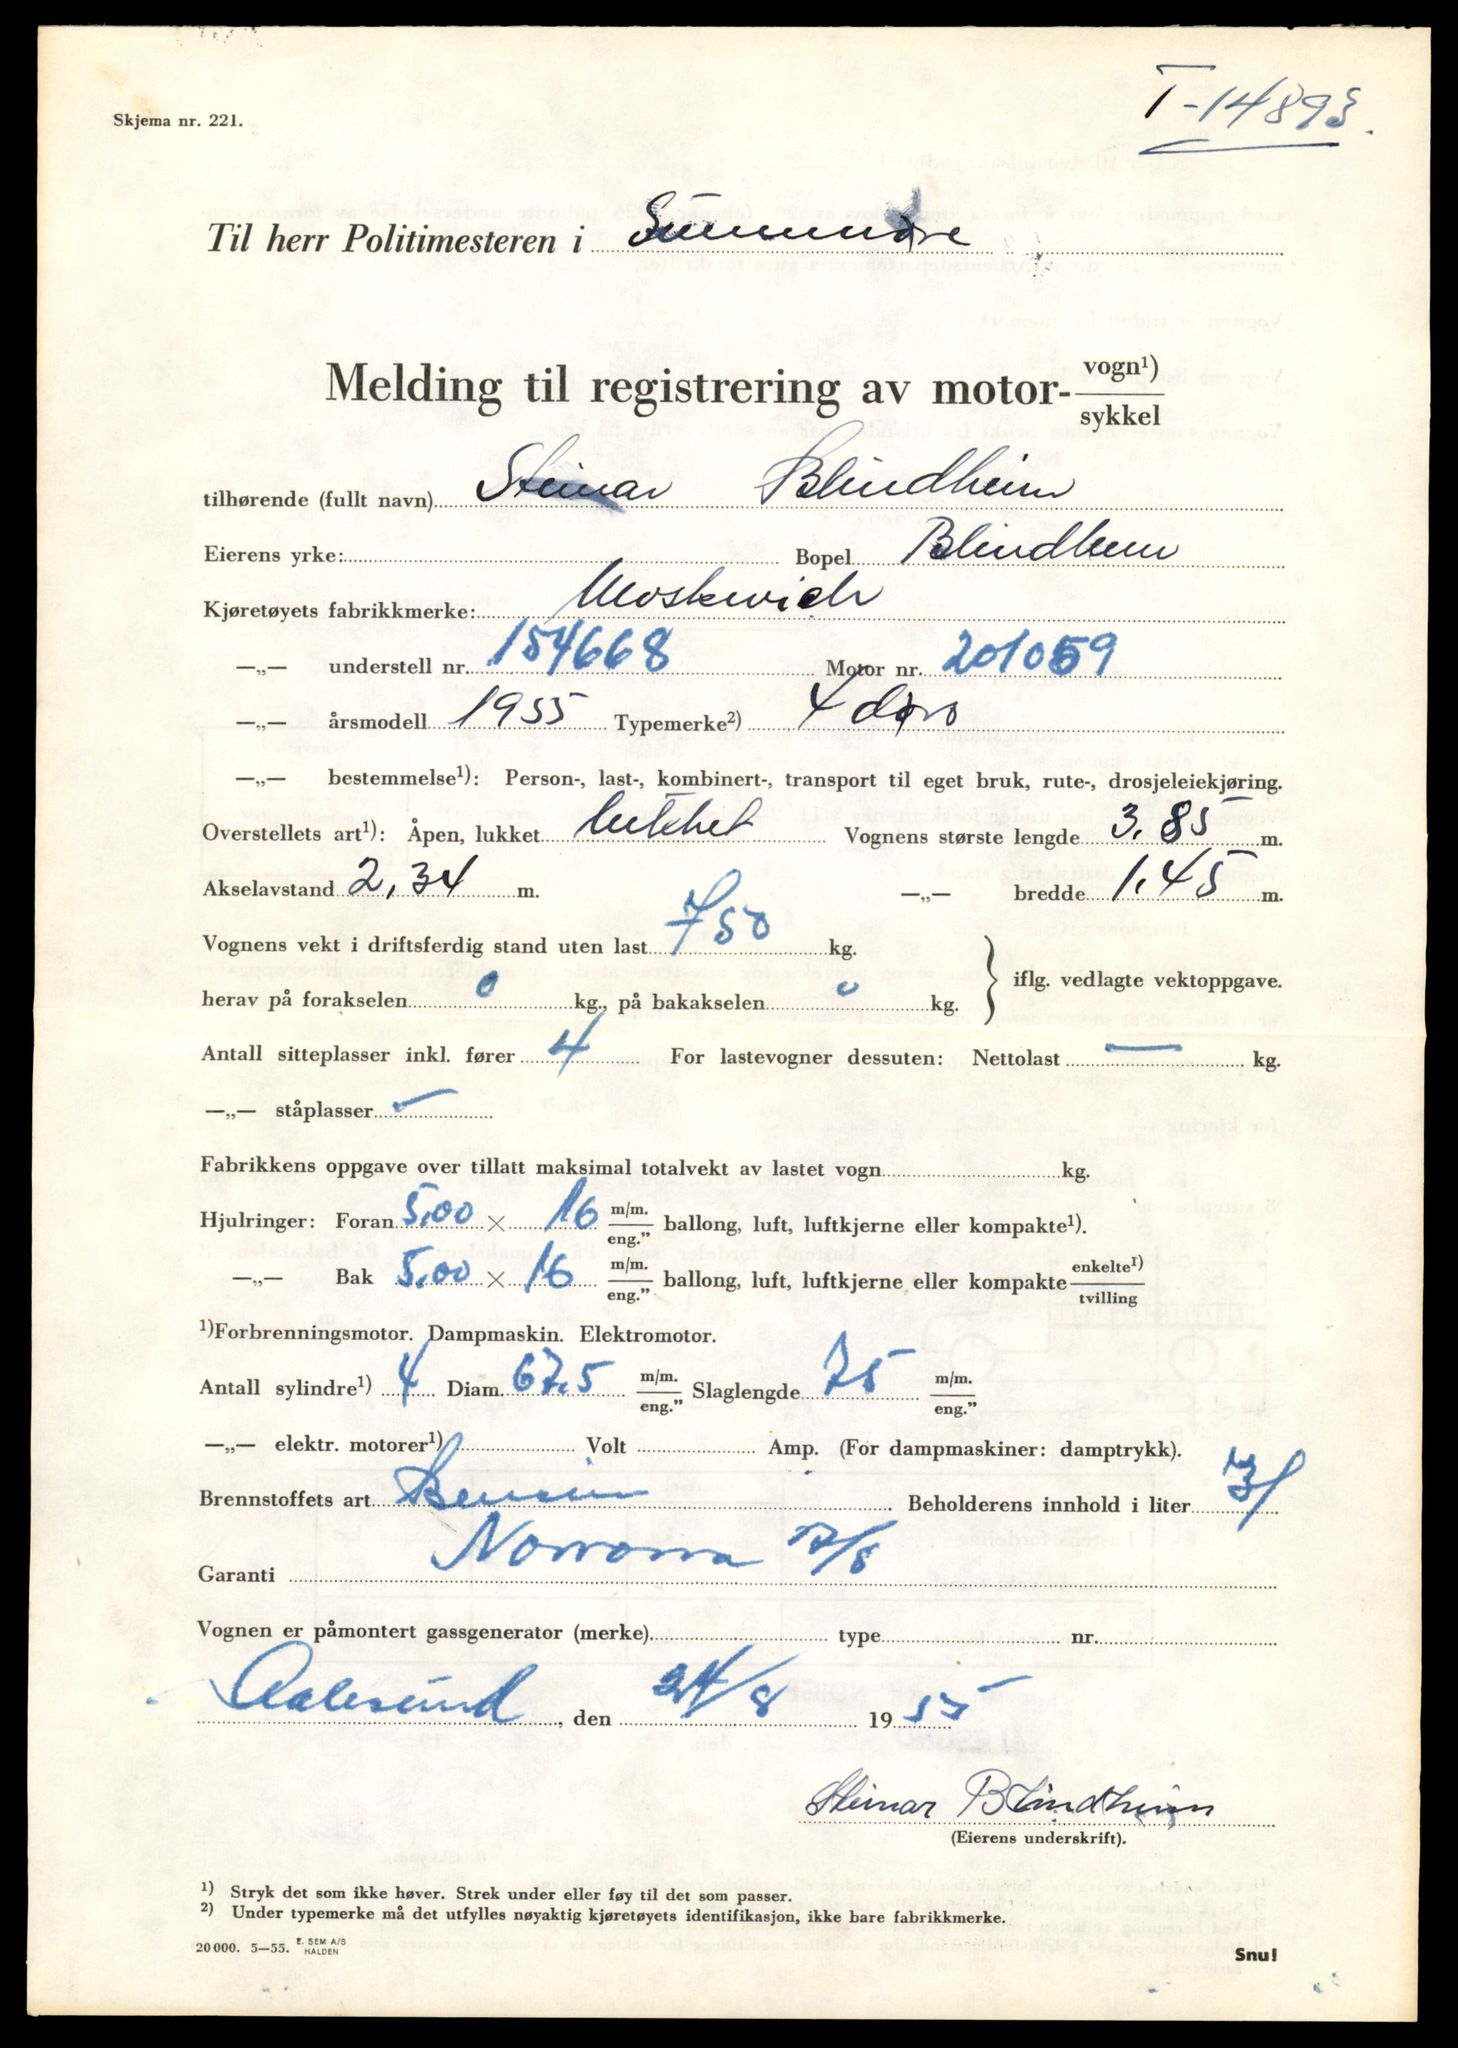 T-14893.
Skjema nr. 221.
Til herr Politimesteren i Sunnmøre
Melding til registrering av motor- vogn¹) sykkel
tilhørende (fullt navn) Steinar Blindheim
Eierens yrke: Bopel Blindheim
Kjøretøyets fabrikkmerke: Moskwich
—„— understell nr. 154668 Motor nr. 201059
—„— årsmodell 1955 Typemerke²) 4 dørs
—„— bestemmelse¹): Person-, last-, kombinert-, transport til eget bruk, rute-, drosjeleiekjøring.
Overstellets art¹): Åpen, lukket lukket Vognens største lengde 3.85 m.
Akselavstand 2,34 m. —„— bredde 1.45 m.
Vognens vekt i driftsferdig stand uten last 750 kg.
herav på forakselen 0 kg., på bakakselen 0 kg. } iflg. vedlagte vektoppgave.
Antall sitteplasser inkl. fører 4 For lastevogner dessuten: Nettolast — kg.
—„— ståplasser —
Fabrikkens oppgave over tillatt maksimal totalvekt av lastet vogn kg.
Hjulringer: Foran 5.00 × 16 m/m. eng.” ballong, luft, luftkjerne eller kompakte¹).
—„— Bak 5.00 × 16 m/m. eng.” ballong, luft, luftkjerne eller kompakte enkelte¹) tvilling
¹)Forbrenningsmotor. Dampmaskin. Elektromotor.
Antall sylindre¹) 4 Diam. 67.5 m/m. eng.” Slaglengde 75 m/m. eng.”
—„— elektr. motorer¹) Volt Amp. (For dampmaskiner: damptrykk).
Brennstoffets art Bensin Beholderens innhold i liter 31
Garanti
Vognen er påmontert gassgenerator (merke) type nr.
Aalesund, den 24/8 1955
Steinar Blindheim
(Eierens underskrift).
¹) Stryk det som ikke høver. Strek under eller føy til det som passer.
²) Under typemerke må det utfylles nøyaktig kjøretøyets identifikasjon, ikke bare fabrikkmerke.
20 000. 5—55. E. SEM A/S HALDEN
Snu!